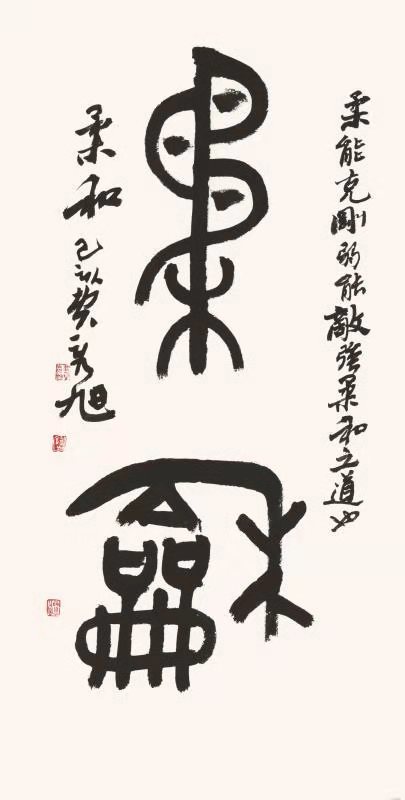 柔能克剛弱能敵強柔和之道也
柔龢
柔和 己亥 旭